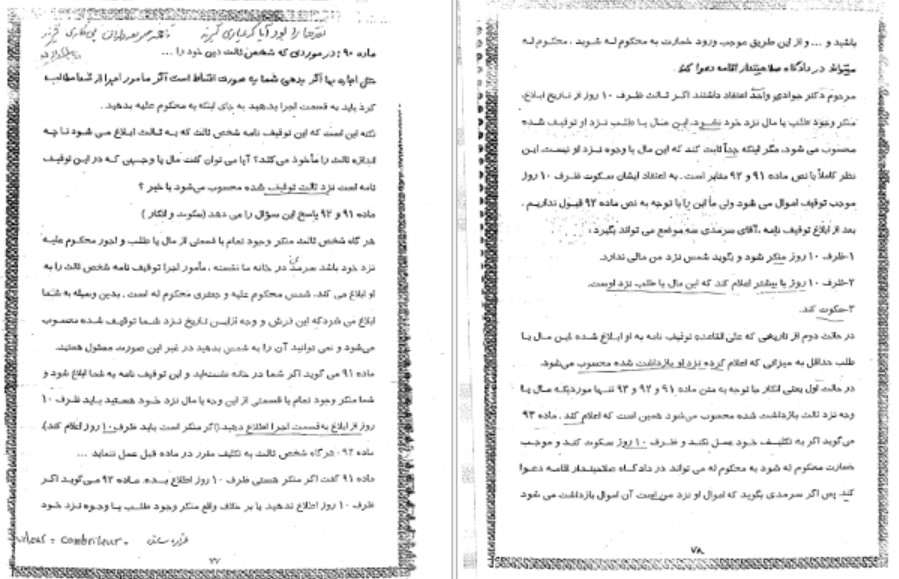 ماده ۹۰ : در موردی که شخص ثالث دین خود را ...
مثل اجاره بها اگر بدهی شما به صورت اقساط است اگر مامور اجرا از شما مطالبه
کرد باید به قسمت اجرا بدهید به جای اینکه به محکوم علیه بدهید .
نکته این است که این توقیف نامه شخص ثالث که به ثالث ابلاغ می شود تا چه
اندازه ثالث را مأخوذ می‌کند؟ آیا می توان گفت مال یا وجهی که در این توقیف
نامه است نزد ثالث توقیف شده محسوب می‌شود یا خیر ؟
ماده ۹۱ و ۹۲ پاسخ این سؤال را می دهد (سکوت و انکار )
هر گاه شخص ثالث منکر وجود تمام یا قسمتی از مال یا طلب و اجور محکوم علیه
نزد خود باشد سرمدی در خانه ما نشسته ، مأمور اجرا توقیف نامه شخص ثالث را به
او ابلاغ می کند، شمس محکوم علیه و جعفری محکوم له است . بدین وسیله به شما
ابلاغ می شود که این فرش و وجه ازاین تاریخ نزد شما توقیف شده محسوب
می‌شود و نمی توانید آن را به شمس بدهید در غیر این صورت مسئول هستید.
ماده ۹۱ می گوید اگر شما در خانه نشسته‌اید و این توقیف نامه به شما ابلاغ شود و
شما منکر وجود تمام یا قسمتی از این وجه یا مال نزد خود هستید باید ظرف ۱۰
روز از ابلاغ به قسمت اجرا اطلاع دهید.(اگر منکر است باید ظرف ۱۰ روز اعلام کند).
ماده ۹۲ : هرگاه شخص ثالث به تکلیف مقرر در ماده قبل عمل ننماید ...
ماده ۹۱ گفت اگر منکر هستی ظرف ۱۰ روز اطلاع بده. ماده ۹۲ می‌گوید اگر
ظرف ۱۰ روز اطلاع ندهید یا بر خلاف واقع منکر وجود طلب یا وجوه نزد خود
۷۷
باشید و ... و از این طریق موجب ورود خسارت به محکوم له شوید ، محکوم له
میتواند در دادگاه صلاحیتدار اقامه دعوا کند.
مرحوم دکتر جوادی واحد اعتقاد داشتند اگر ثالث ظرف ۱۰ روز از تاریخ ابلاغ،
منکر وجود طلب یا مال نزد خود نشود، این مال یا طلب نزد او توقیف شده
محسوب می شود، مگر اینکه جداً ثابت کند که این مال یا وجوه نزد او نیست. این
نظر کاملاً با نص ماده ۹۱ و ۹۲ مغایر است . به اعتقاد ایشان سکوت ظرف ۱۰ روز
موجب توقیف اموال می شود ولی ما این را با توجه به نص ماده ۹۲ قبول نداریم .
بعد از ابلاغ توقیف نامه ،آقای سرمدی سه موضع می تواند بگیرد :
۱-ظرف ۱۰ روز منکر شود و بگوید شمس نزد من مالی ندارد.
۲-ظرف ۱۰ روز یا بیشتر اعلام کند که این مال یا طلب نزد اوست.
۳-سکوت کند.
در حالت دوم از تاریخی که علی القاعده توقیف نامه به او ابلاغ شده این مال یا
طلب حداقل به میزانی که اعلام کرده نزد او بازداشت شده محسوب می‌شود.
در حالت اول یعنی انکار با توجه به متن ماده ۹۱ و ۹۲ و ۹۳ تنها موردیکه مال یا
وجه نزد ثالث بازداشت شده محسوب می‌شود همین است که اعلام کند . ماده ۹۳
می‌گوید اگر به تکلیف خود عمل نکند و ظرف ۱۰ روز سکوت کند و موجب
خسارت محکوم له شود به محکوم له می تواند در دادگاه صلاحیتدار اقامه دعوا
کند. پس اگر سرمدی بگوید که اموال او نزد من است آن اموال بازداشت می شود
۷۸